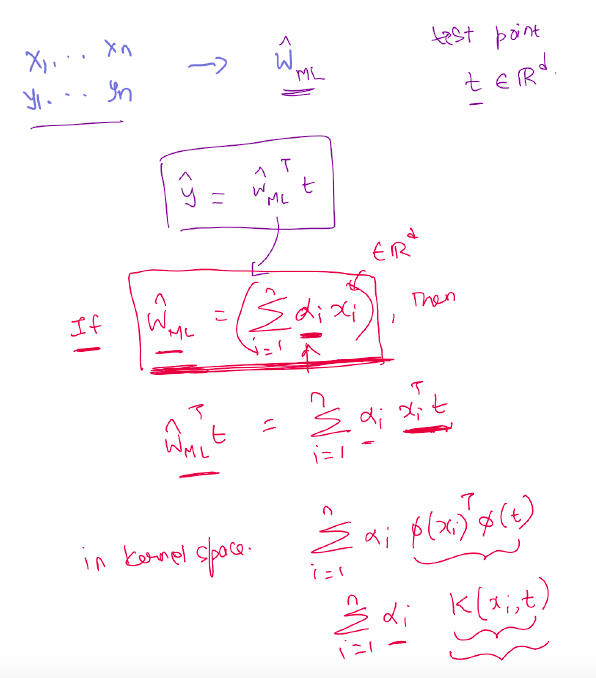 x₁, ... xₙ → ŵ_ML
y₁, ... yₙ
test point
t ∈ ℝᵈ.
ŷ = ŵ_MLᵀ t
If ŵ_ML = (∑ᵢ₌₁ⁿ αᵢ xᵢ), Then
∈ ℝᵈ
ŵ_MLᵀ t = ∑ᵢ₌₁ⁿ αᵢ xᵢᵀ t
in kernel space. ∑ᵢ₌₁ⁿ αᵢ φ(xᵢ)ᵀ φ(t)
∑ᵢ₌₁ⁿ αᵢ K(xᵢ, t)